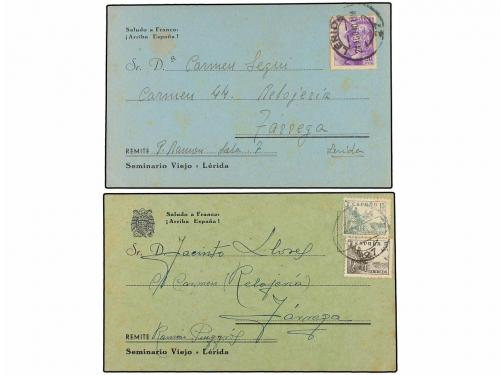 Saludo a Franco:
¡Arriba España!
LERIDA
Sr. D.ª Carmen Seguí
Carmen 44. Relojería
Tárrega
REMITE R. Ramon Sala. 7 Lerida
Seminario Viejo - Lérida
Saludo a Franco:
¡Arriba España!
ESPAÑA
ESPAÑA
CORREOS
27
Sr. D. Jacinto Llores
(Relojería)
Tárrega
REMITE Ramon
Seminario Viejo - Lérida